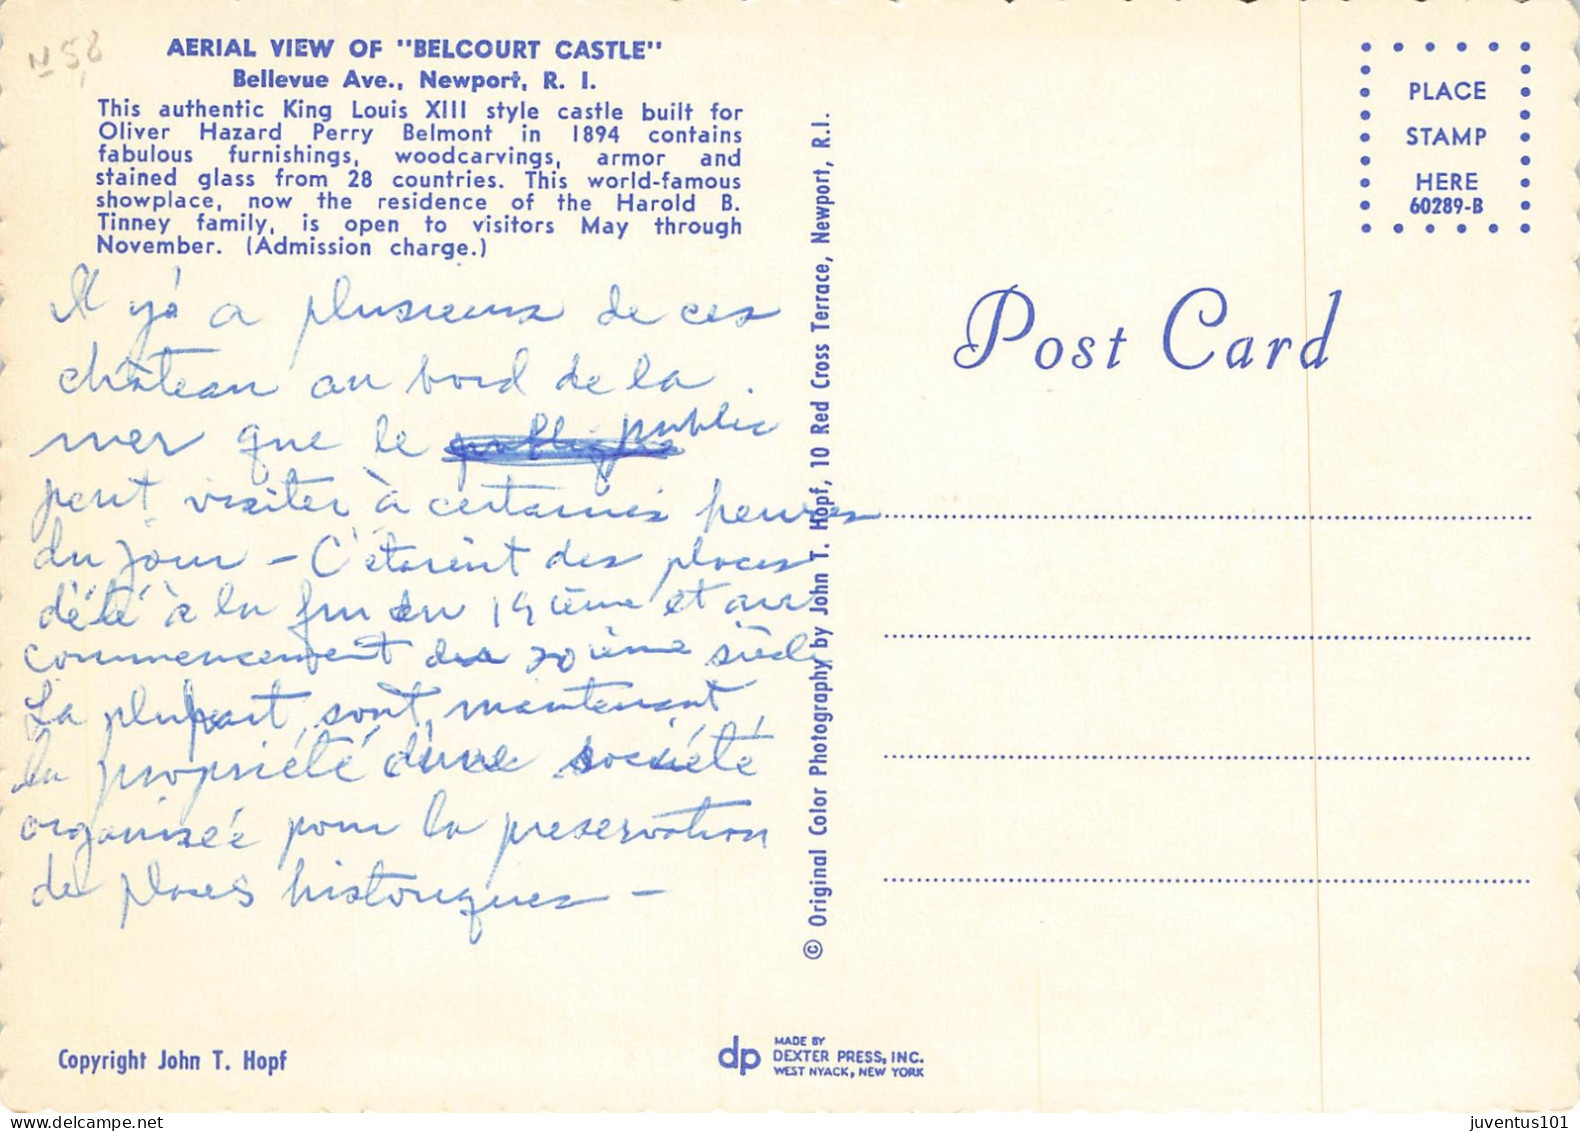 N 5,8
AERIAL VIEW OF "BELCOURT CASTLE"
Bellevue Ave., Newport, R. I.
This authentic King Louis XIII style castle built for
Oliver Hazard Perry Belmont in 1894 contains
fabulous furnishings, woodcarvings, armor and
stained glass from 28 countries. This world-famous
showplace, now the residence of the Harold B.
Tinney family, is open to visitors May through
November. (Admission charge.)
Il y'a a plusieurs de ces
château au bord de la
mer que le public
peut visiter à certaines heures
du jour – C'étaient des places
d'été à la fin du 19 ième et au
commencement du 20 ième siècle
La plupart sont maintenant
la propriété d'une société
organisée pour la preservation
de places historiques –
Copyright John T. Hopf
© Original Color Photography by John T. Hopf, 10 Red Cross Terrace, Newport, R.I.
dp
MADE BY
DEXTER PRESS, INC.
WEST NYACK, NEW YORK
PLACE
STAMP
HERE
60289-B
Post Card
juventus101